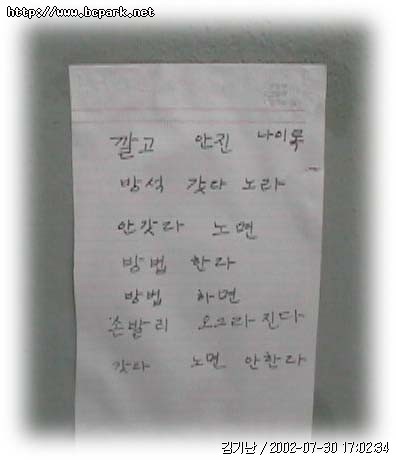 http://www.bcpark.net
깔고 안진 나이롱
방석 갓다 노라
안갓다 노면
방법 한다
방법 하면
손발리 오그라진다
갓다 노면 안한다
김기난 / 2002-07-30 17:02:34